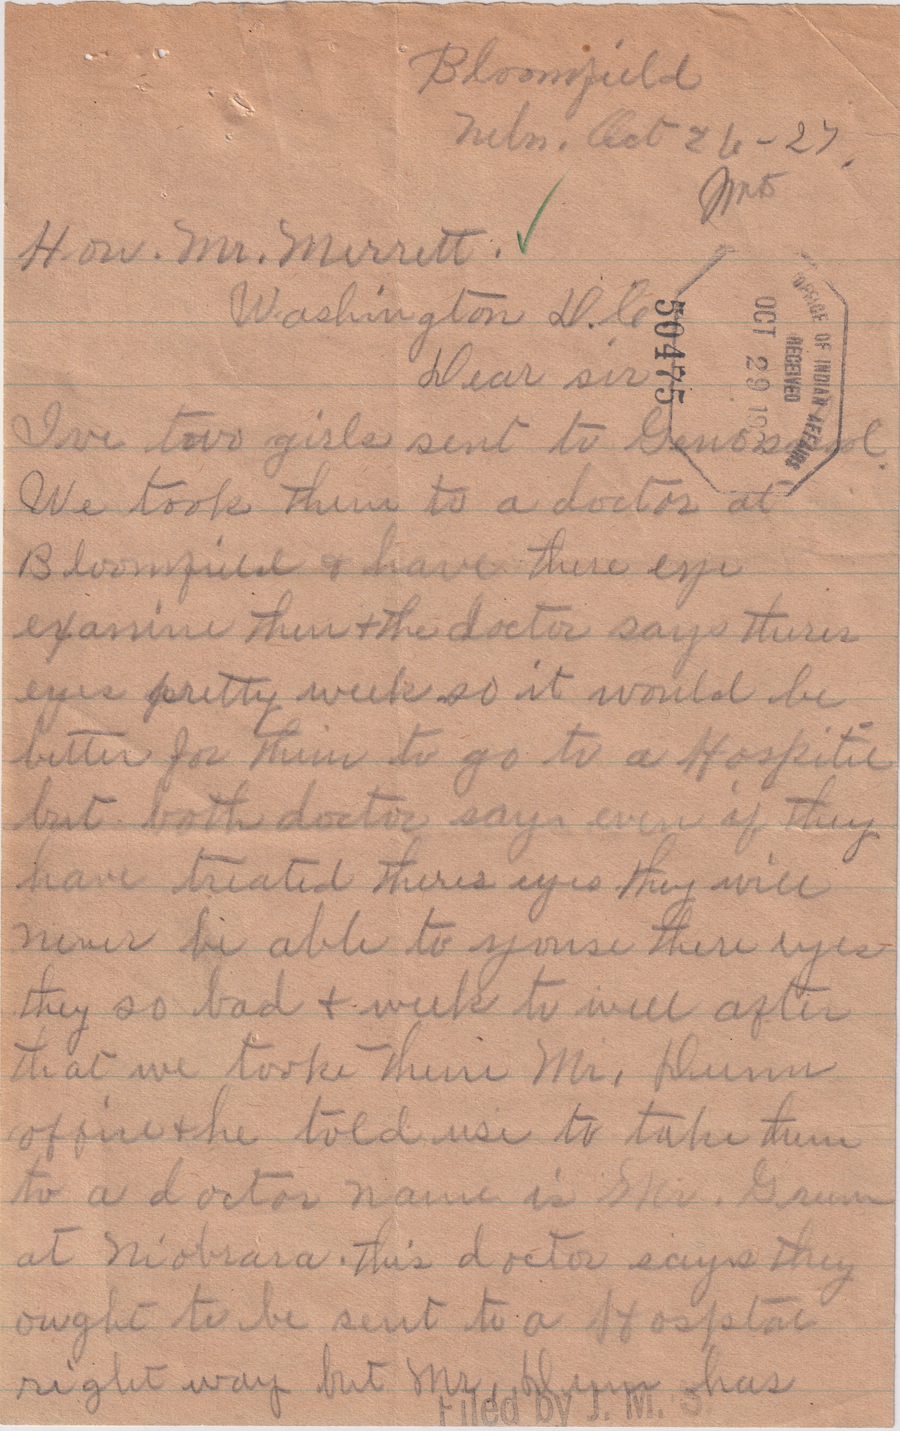 Bloomfield
Nebr. Oct 26-27.
Hon. Mr. Merrett.
Washington D.C.
Dear sir
50475
OFFICE OF INDIAN AFFAIRS
RECEIVED
OCT 29 192
I've two girls sent to
We took them to a doctor at
Bloomfield & have there eye
examine then & the doctor says theres
eyes pretty week so it would be
better for them to go to a Hospitie
but both doctor says even if they
have treated theres eyes they will
never be able to yonse there eyes
they so bad & week to well after
that we tooke them Mr, Dunn
offire & he told use to take them
to a doctor name is Mr. Grum
at Niobrara. this doctor says they
ought to be sent to a Hosptae
right way but Mr, Dunn has
Filed by J. M. S.